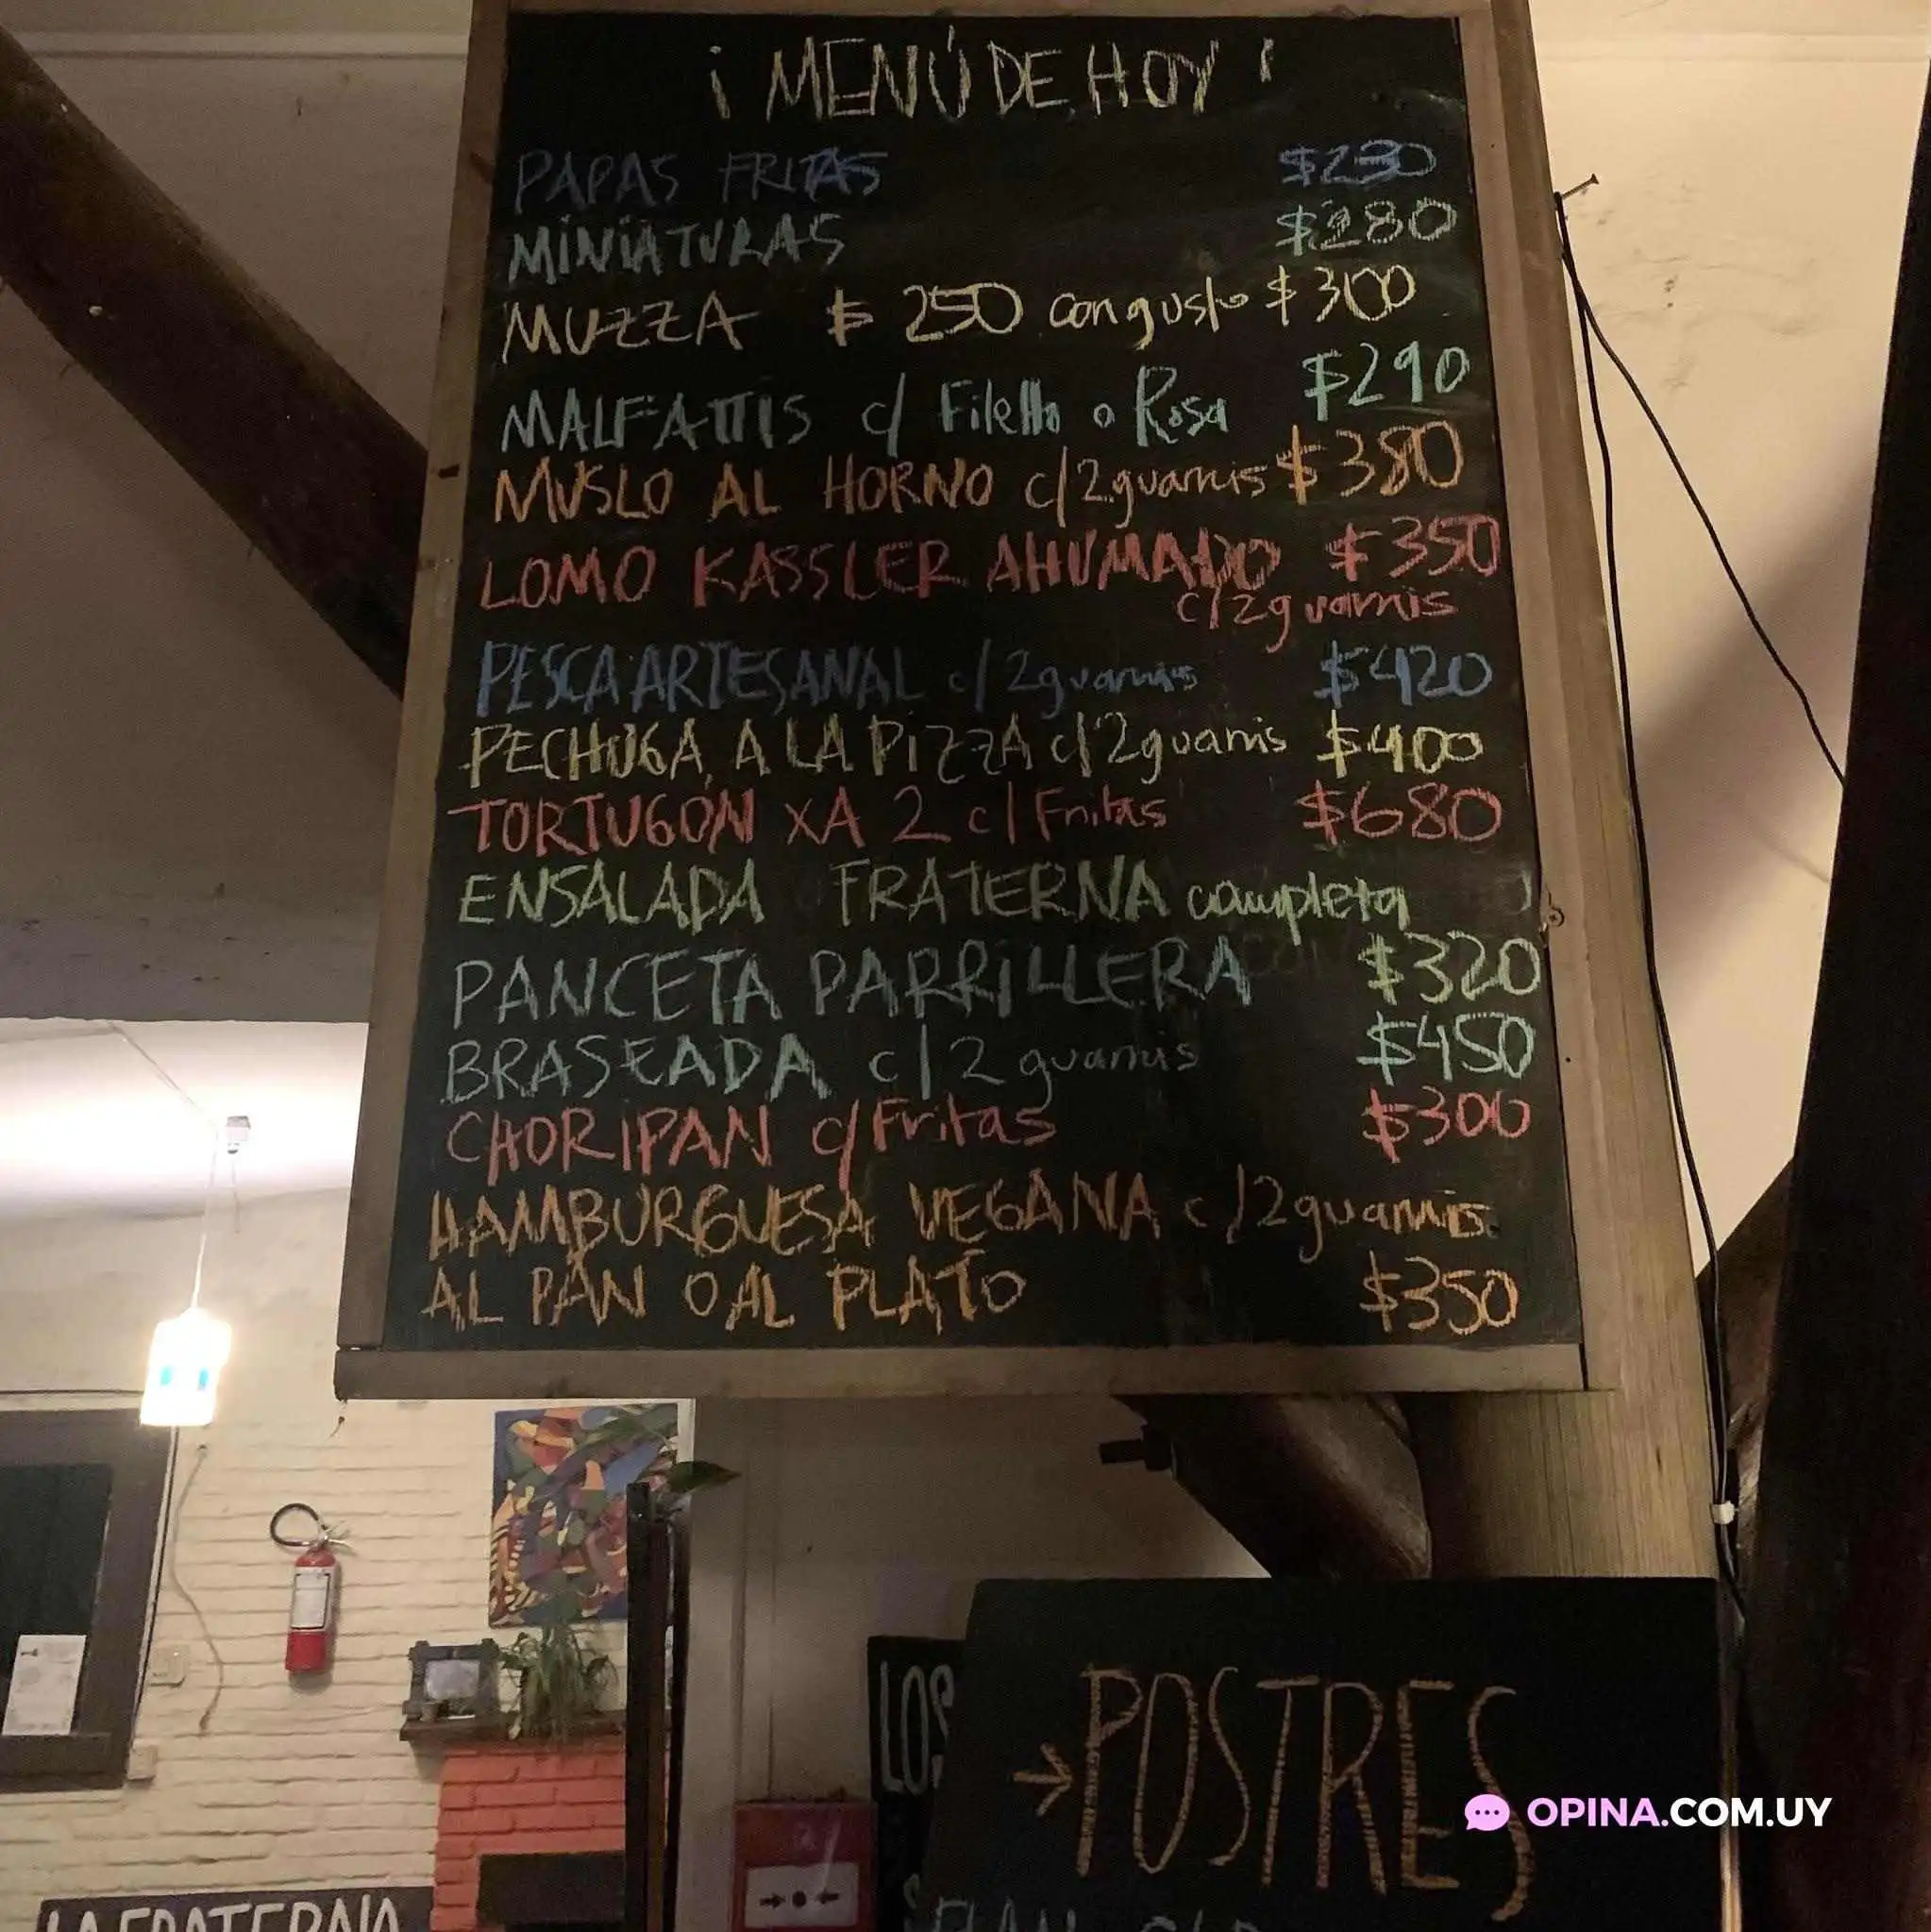 ¡MENÚ DE HOY!
PAPAS FRITAS $230
MINIATURAS $280
MUZZA $ 250 con gusto $300
MALFATTIS c/ Filetto o Rosa $290
MUSLO AL HORNO c/2 guarnis $380
LOMO KASSLER AHUMADO $350
c/2 guarnis
PESCA ARTESANAL c/2 guarnis $420
PECHUGA A LA PIZZA c/2 guarnis $400
TORTUGÓN XA 2 c/ Fritas $680
ENSALADA FRATERNA completa
$320
PANCETA PARRILLERA
BRASEADA c/2 guarnis $450
CHORIPAN c/Fritas $300
HAMBURGUESA VEGANA c/2 guarnis
AL PAN O AL PLATO $350
LOS
→POSTRES
OPINA.COM.UY
LA FRATERNA
FLAN